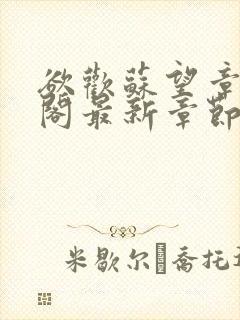 欲歡蘇望章
閣最新章節
米歇尔 喬托